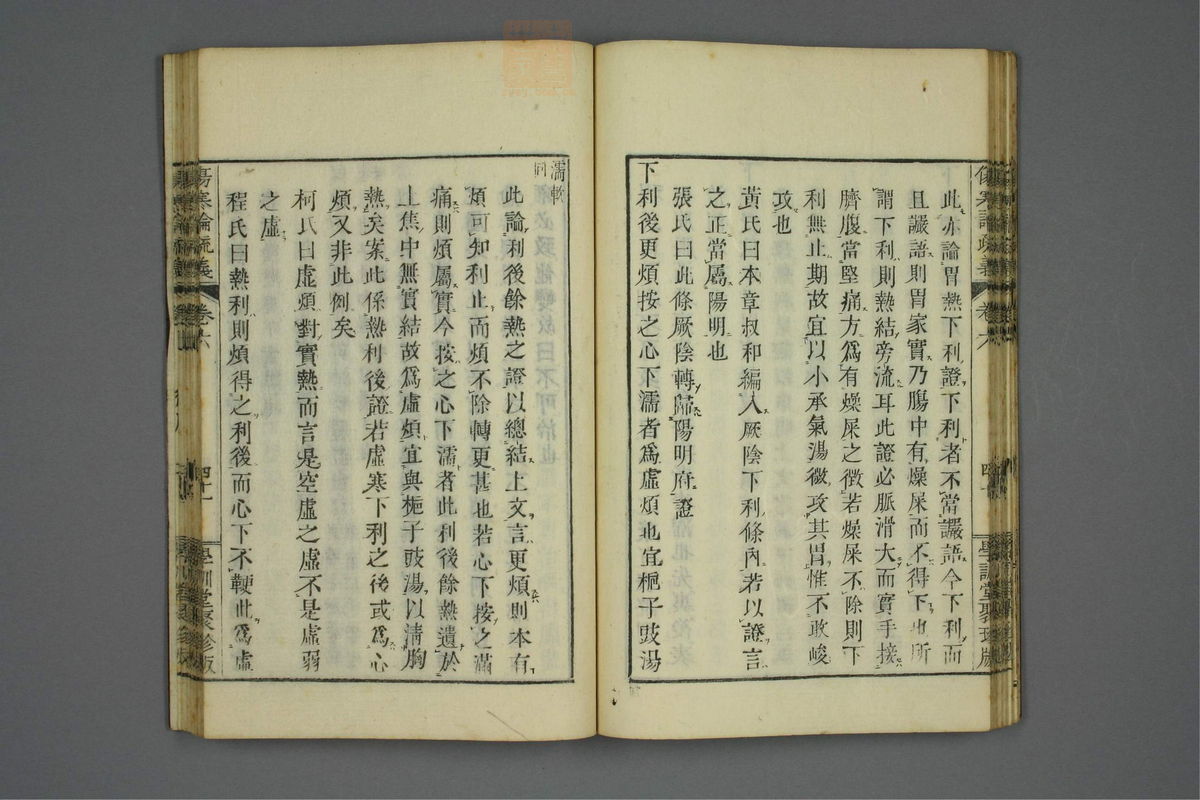 此亦論胃熱下利證下利者不當讝語今下利而
且讝語則胃家實乃腸中有燥屎而不得下也所
謂下利則熱結旁流耳此證必脈滑大而實手按
臍腹當堅痛方爲有燥屎之徵若燥屎不除則下
利無止期故宜以小承氣湯微攻其胃惟不敢峻
攻也
黃氏曰本章叔和編入厥陰下利條內若以證言
之正當屬陽明也
張氏曰此條厥陰轉歸陽明府證
下利後更煩按之心下濡者爲虛煩也宜梔子豉湯
濡軟同
此論利後餘熱之證以總結上文言更煩則本有
煩可知利止而煩不除轉更甚也若心下按之滿
痛則煩屬實今按之心下濡者此利後餘熱遺於
上焦中無實結故爲虛煩宜與梔子豉湯以清胸
熱矣案此係熱利後證若虛寒下利之後或爲心
煩又非此例矣
柯氏曰虛煩對實熱而言是空虛之虛不是虛弱
之虛
程氏曰熱利則煩得之利後而心下不鞕此爲虛
傷寒論疏義
卷六
四十一
學訓堂聚珍版